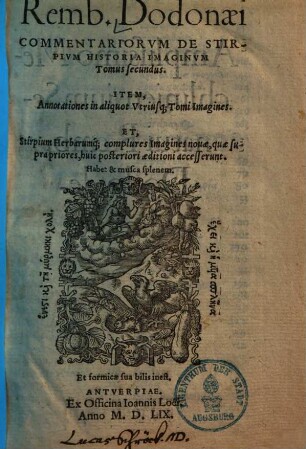 Remb. Dodonæi
COMMENTARIORVM DE STIR-
PIVM HISTORIA IMAGINVM
Tomus secundus.
ITEM,
Annotationes in aliquot Vtriusq; Tomi Imagines.
ET,
Stirpium Herbarumq; complures Imagines nouæ, quæ su-
pra priores, huic posteriori æditioni accesserunt.
Habet & musca splenem.
Et formicæ sua bilis inest.
ANTVERPIAE.
Ex Officina Ioannis Loëi.
Anno M. D. LIX.
AUGSBURG
Lucas Schröck MD.